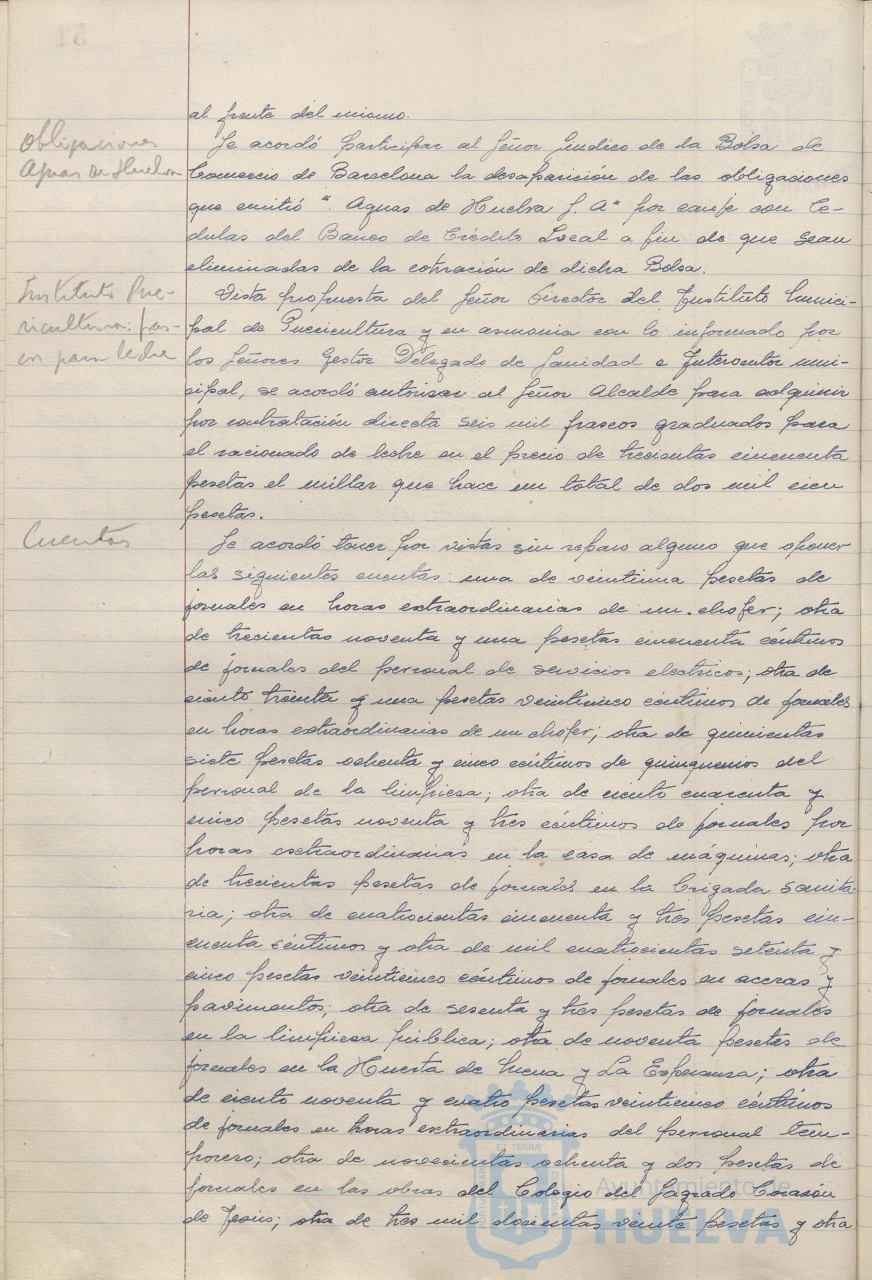 al frente del mismo.
Obligaciones
Aguas de Huelva
Se acordó participar al Señor Síndico de la Bolsa de
Comercio de Barcelona la desaparición de las obligaciones
que emitió "Aguas de Huelva S. A" por canje con Cé-
dulas del Banco de Crédito Local a fin de que sean
eliminadas de la cotización de dicha Bolsa.
Instituto Pue-
ricultura: fras-
cos para leche
Vista propuesta del Señor Director del Instituto Munici-
pal de Puericultura y en armonia con lo informado por
los Señores Gestor Delegado de Sanidad e Interventor muni-
cipal, se acordó autorizar al Señor Alcalde para adquirir
por contratación directa seis mil frascos graduados para
el racionado de leche en el precio de trecientas cincuenta
pesetas el millar que hace un total de dos mil cien
pesetas.
Cuentas
Se acordó tener por vistas sin reparo alguno que oponer
las siguientes cuentas: una de veintiuna pesetas de
jornales en horas extraordinarias de un chofer; otra
de trecientas noventa y una pesetas cincuenta céntimos
de jornales del personal de servicios electricos; otra de
ciento treinta y una pesetas veinticinco céntimos de jornales
en horas extraordinarias de un chofer; otra de quinientas
siete pesetas ochenta y cinco céntimos de quinquenios del
personal de la limpiesa; otra de ciento cuarenta y
cinco pesetas noventa y tres céntimos de jornales por
horas extraordinarias en la casa de máquinas; otra
de trecientas pesetas de jornales en la Brigada Sanita-
ria; otra de cuatrocientas cincuenta y tres pesetas cin-
cuenta céntimos y otra de mil cuatrocientas setenta y
cinco pesetas veinticinco céntimos de jornales en aceras y
pavimentos; otra de sesenta y tres pesetas de jornales
en la limpiesa pública; otra de noventa pesetas de
jornales en la Huerta de Mena y La Esperanza; otra
de ciento noventa y cuatro pesetas veinticinco céntimos
de jornales en horas extraordinarias del personal tem-
porero; otra de novecientas ochenta y dos pesetas de
jornales en las obras del Colegio del Sagrado Corazón
de Jesús; otra de tres mil doscientas veinte pesetas y otra
Ayuntamiento de
HUELVA